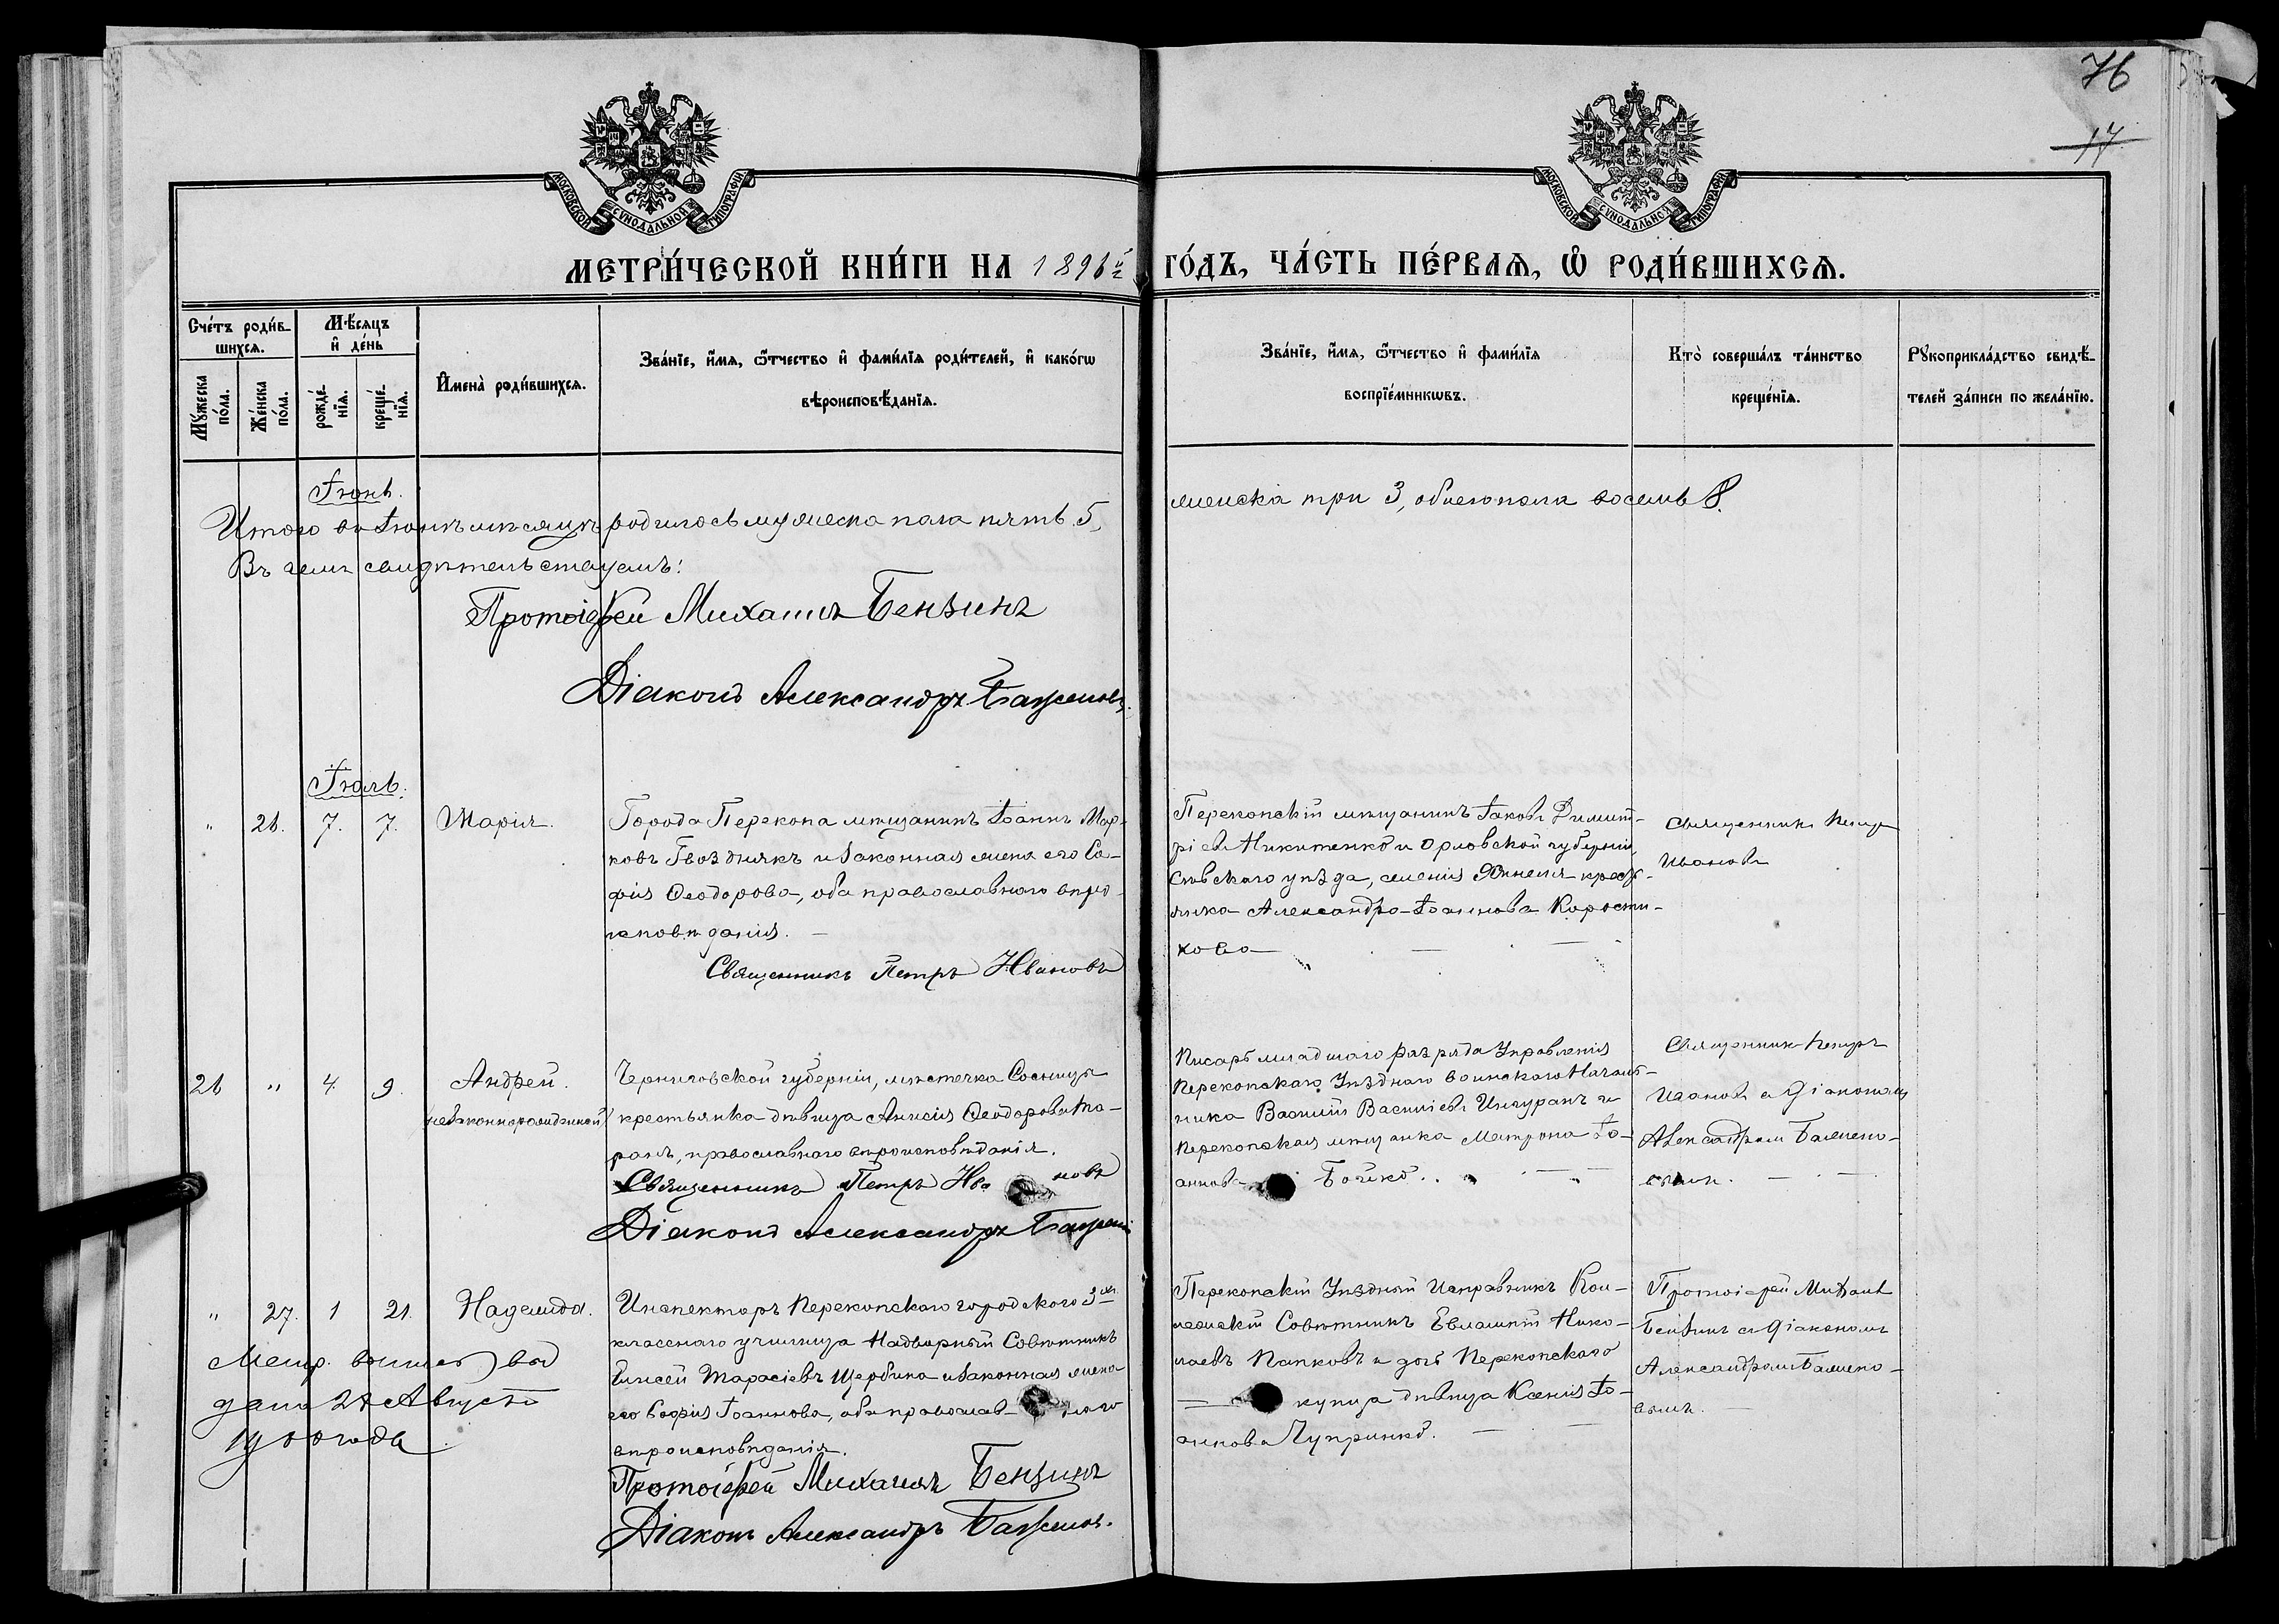 76
17
МОСКОВСКОЙ СѴНОДАЛЬНОЙ ТИПОГРАФІИ
МОСКОВСКОЙ СѴНОДАЛЬНОЙ ТИПОГРАФІИ
МЕТРИ́ЧЕСКОЙ КНИ́ГИ НА 1896й ГО́ДЪ, ЧА́СТЬ ПЕ́РВАѦ, Ѡ РОДИ́ВШИХСѦ.
Сче́тъ роди́в-
шихсѧ.
Мѣ́сѧцъ
и҆ де́нь
Мꙋ́жеска по́ла.
Же́нска по́ла.
рожде́-нїѧ.
креще́-нїѧ.
И҆мена̀ роди́вшихсѧ.
Зва́нїе, и҆́мѧ, ѻ҆́тчество и҆ фами́лїѧ роди́телей, и҆ како́гѡ
вѣроисповѣ́данїѧ.
Зва́нїе, и҆́мѧ, ѻ҆́тчество и҆ фами́лїѧ
воспрїе́мникѡвъ.
Кто̀ соверша́лъ та́инство
креще́нїѧ.
Рꙋкоприкла́дство свидѣ́-
телей за́писи по жела́нїю.
Іюнь.
Итого въ Іюнѣ мѣсяцѣ родилось мужеска пола пять 5,
женска три 3, обоего пола восемь 8.
Въ чемъ свидѣтельствуемъ:
Протоіерей Михаилъ Бензинъ
Діаконъ Александръ Баженовъ.
Іюль.
" 26. 7. 7. Марія.
Города Перекопа мѣщанинъ Іоаннъ Мар-
ковъ Гвозднякъ и законная жена его Со-
фія Ѳеодорова, оба православнаго вѣро-
исповѣданія. —
Священникъ Петръ Ивановъ
Перекопскій мѣщанинъ Іаковъ Димит-
ріевъ Никитенко и Орловской губерніи,
Сѣвскаго уѣзда, селенія кресть-
янка Александра Іоаннова Корости-
кова
Священникъ Петръ
Ивановъ
26 " 4 9. Андрей.
(незаконнорожденный)
Черниговской губерніи, мѣстечка Сосницы
крестьянка дѣвица Анисія Ѳеодорова Та-
ранъ, православнаго вѣроисповѣданія.
Священникъ Петръ Ивановъ
Діаконъ Александръ Баженовъ
Писарь младшаго разряда Управленія
Перекопскаго Уѣзднаго воинскаго Началь-
ника Василій Васильевъ и
Перекопская мѣщанка Матрона Іо-
аннова Бойко.
Священникъ Петръ
Ивановъ съ Діакономъ
Александромъ Бажено-
вымъ.
" 27. 1 21. Надежда.
Метр. выпись выд
дана 27 Августа
1900 года
Инспекторъ Перекопскаго городского 3хъ
класснаго училища Надворный Совѣтникъ
Елисей Тарасіевъ Щербина и законная жена
его Софія Іоаннова, оба православнаго
вѣроисповѣданія.
Протоіерей Михаилъ Бензинъ
Діаконъ Александръ Баженовъ.
Перекопскій Уѣздный Исправникъ Кол-
лежскій Совѣтникъ Евлампій Нико-
лаевъ Папковъ и дочь Перекопскаго
купца дѣвица Ксенія Іо-
аннова Чупринко.
Протоіерей Михаилъ
Бензинъ съ Діакономъ
Александромъ Бажено-
вымъ.